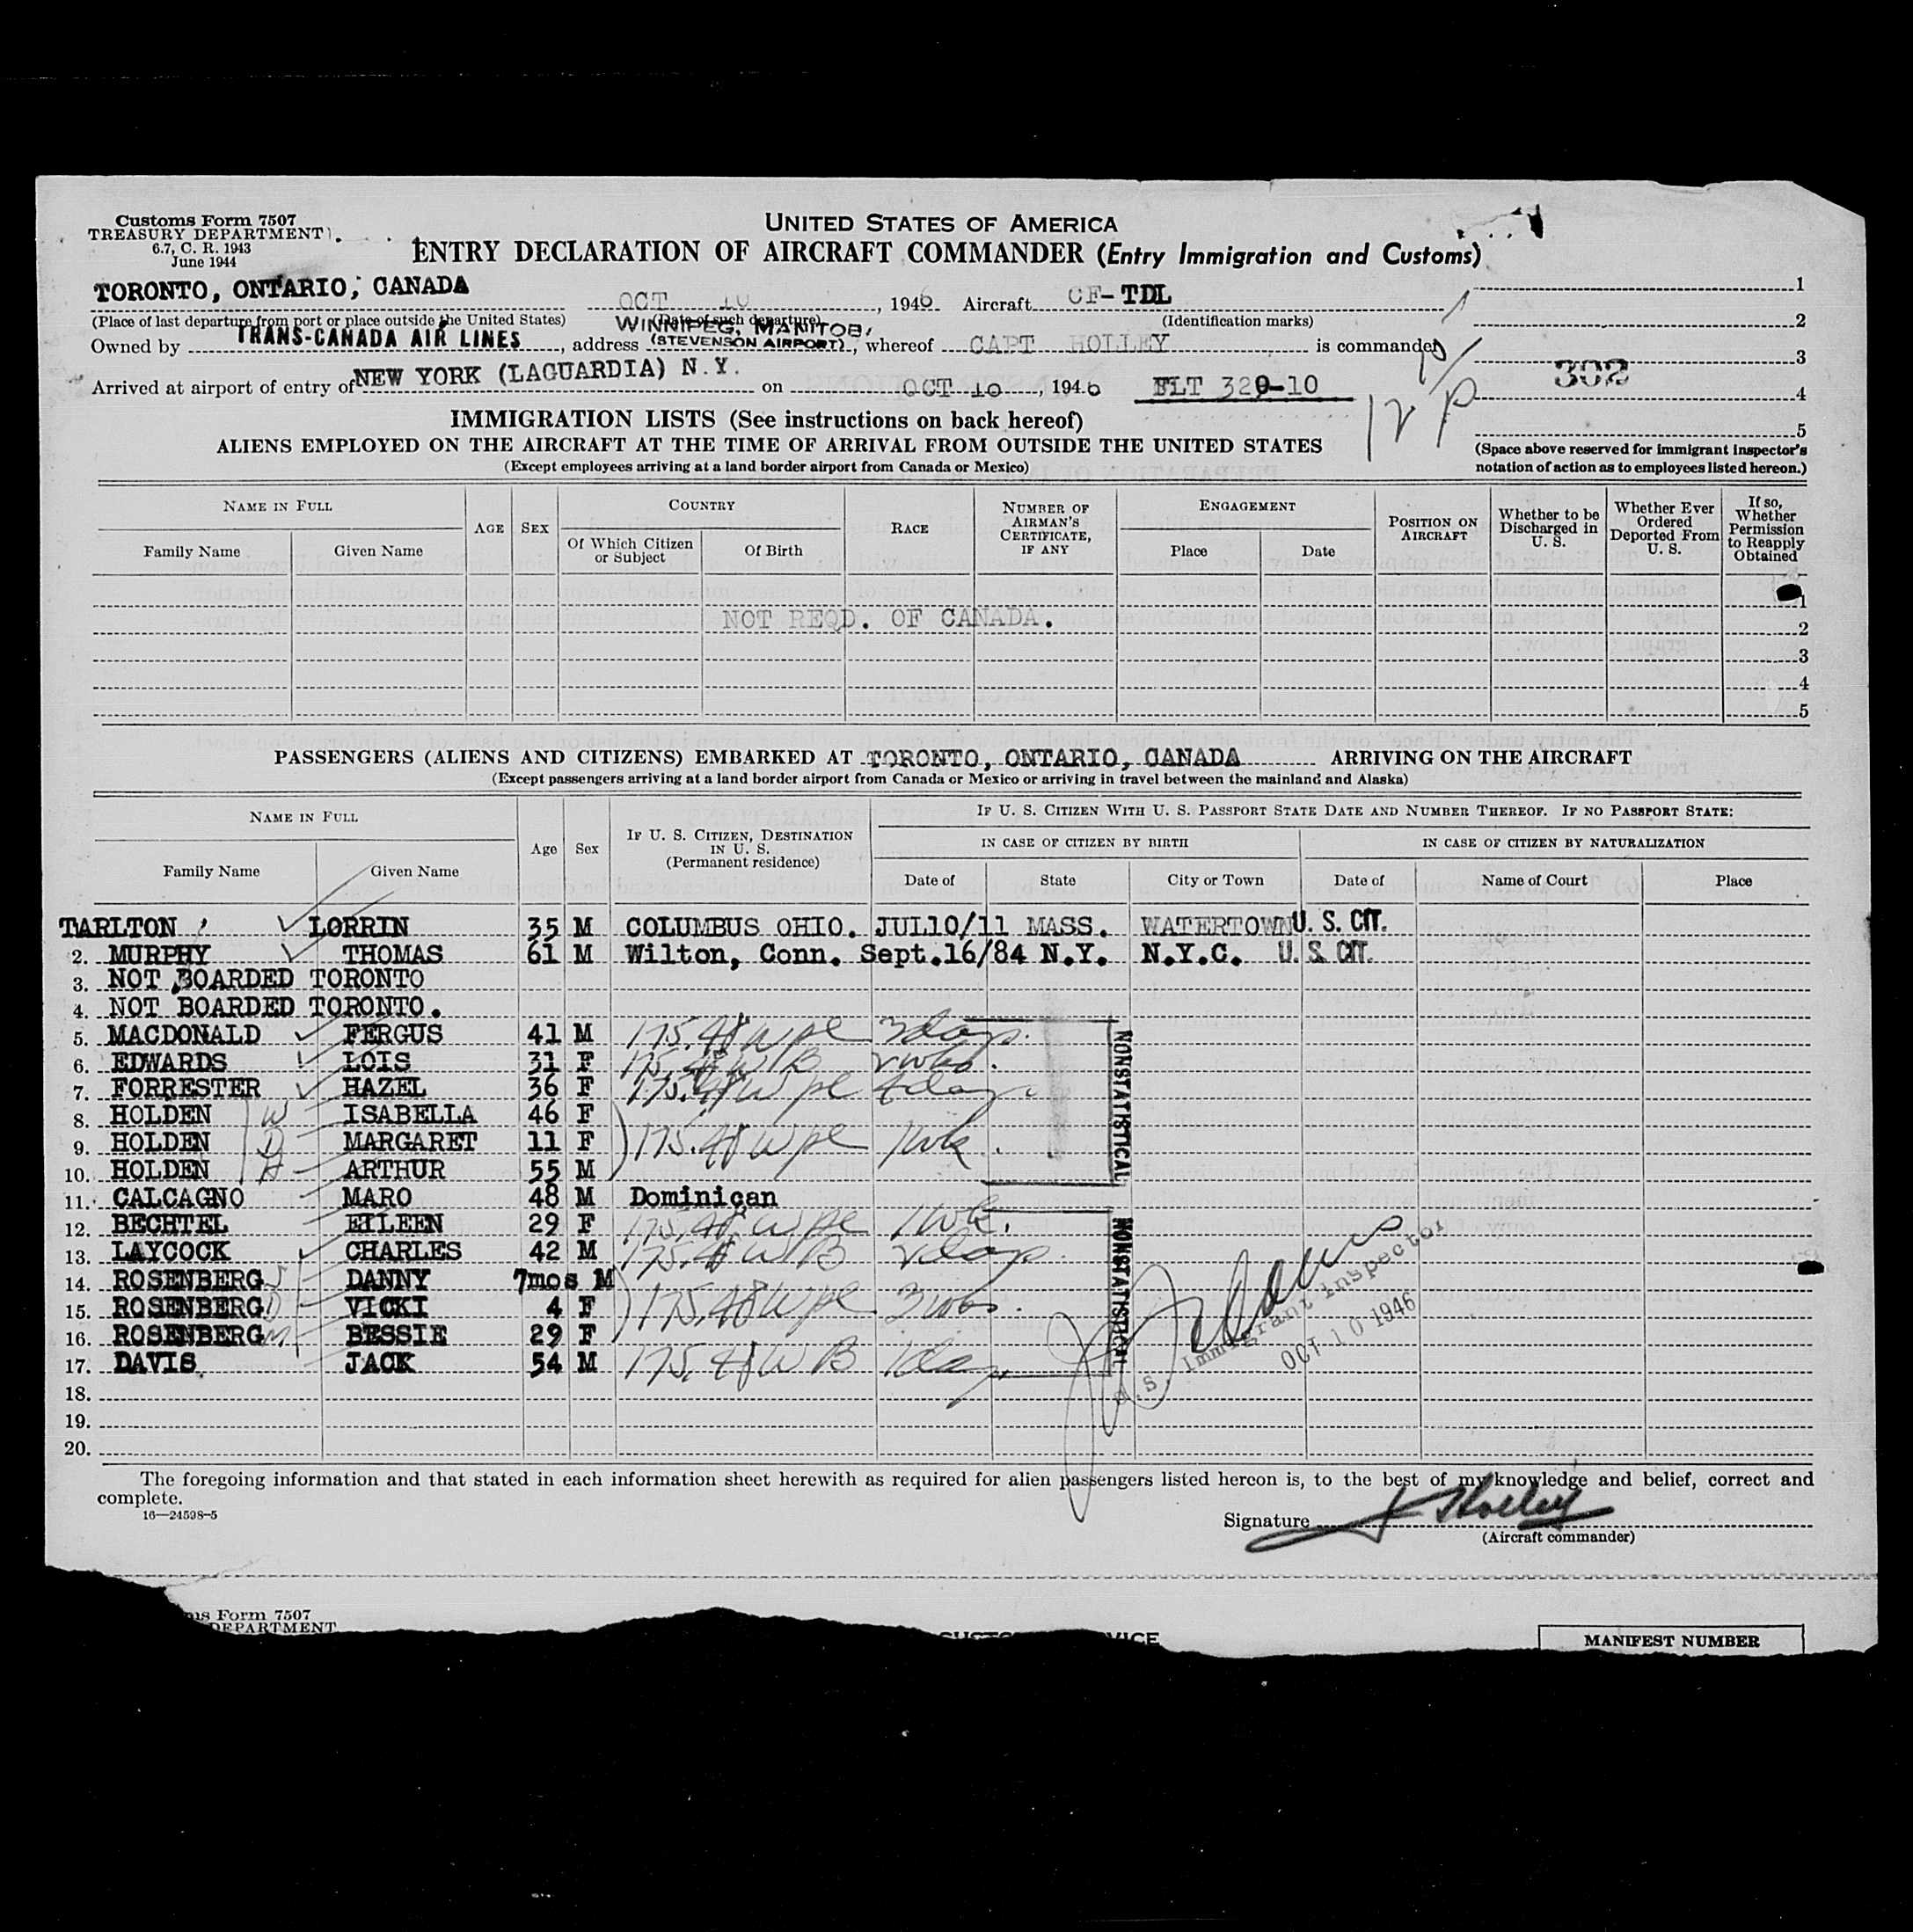 Customs Form 7507
TREASURY DEPARTMENT
6.7, C. R. 1943
June 1944
UNITED STATES OF AMERICA
ENTRY DECLARATION OF AIRCRAFT COMMANDER (Entry Immigration and Customs)
TORONTO, ONTARIO, CANADA OCT 10, 1946 Aircraft CF-TDL 1
(Place of last departure from port or place outside the United States) (Date of such departure) (Identification marks) 2
WINNIPEG, MANITOB,
Owned by TRANS-CANADA AIR LINES, address (STEVENSON AIRPORT), whereof CAPT HOLLEY is commander 3
302
Arrived at airport of entry of NEW YORK (LAGUARDIA) N.Y. on OCT 10, 1946 FLT 320-10 4
IMMIGRATION LISTS (See instructions on back hereof) 5
ALIENS EMPLOYED ON THE AIRCRAFT AT THE TIME OF ARRIVAL FROM OUTSIDE THE UNITED STATES
(Except employees arriving at a land border airport from Canada or Mexico)
(Space above reserved for immigrant inspector's
notation of action as to employees listed hereon.)
NAME IN FULL
Family Name Given Name
AGE SEX
COUNTRY
Of Which Citizen or Subject Of Birth
RACE
NUMBER OF AIRMAN'S CERTIFICATE, IF ANY
ENGAGEMENT
Place Date
POSITION ON AIRCRAFT
Whether to be Discharged in U. S.
Whether Ever Ordered Deported From U. S.
If so, Whether Permission to Reapply Obtained
1
NOT REQD. OF CANADA. 2
3
4
5
PASSENGERS (ALIENS AND CITIZENS) EMBARKED AT TORONTO, ONTARIO, CANADA ARRIVING ON THE AIRCRAFT
(Except passengers arriving at a land border airport from Canada or Mexico or arriving in travel between the mainland and Alaska)
NAME IN FULL
Family Name Given Name
Age Sex
IF U. S. CITIZEN, DESTINATION IN U. S. (Permanent residence)
IF U. S. CITIZEN WITH U. S. PASSPORT STATE DATE AND NUMBER THEREOF. IF NO PASSPORT STATE:
IN CASE OF CITIZEN BY BIRTH IN CASE OF CITIZEN BY NATURALIZATION
Date of State City or Town Date of Name of Court Place
TARLTON LORRIN 35 M COLUMBUS OHIO. JUL10/11 MASS. WATERTOWN U. S. CIT.
2. MURPHY THOMAS 61 M Wilton, Conn. Sept.16/84 N.Y. N.Y.C. U. S. CIT.
3. NOT BOARDED TORONTO
4. NOT BOARDED TORONTO.
5. MACDONALD FERGUS 41 M 175.48 W pl 3 days.
6. EDWARDS LOIS 31 F 175.48 W B 2 wks.
7. FORRESTER HAZEL 36 F 175.48 W pl 4 days
8. HOLDEN W ISABELLA 46 F
9. HOLDEN D MARGARET 11 F 175.48 W pl 1 wk.
10. HOLDEN H ARTHUR 55 M
NONSTATISTICAL
11. CALCAGNO MARO 48 M Dominican
12. BECHTEL EILEEN 29 F 175.48 W pl 1 wk.
13. LAYCOCK CHARLES 42 M 175.48 W B 2 days.
14. ROSENBERG DANNY 7mos M
15. ROSENBERG D VICKI 4 F 175.48 W pl 3 wks.
16. ROSENBERG M BESSIE 29 F
17. DAVIS JACK 54 M 175.48 W B 1 day
NONSTATISTICAL
U.S. Immigrant Inspector
OCT 10 1946
18.
19.
20.
The foregoing information and that stated in each information sheet herewith as required for alien passengers listed hereon is, to the best of my knowledge and belief, correct and
complete.
16—24598-5
Signature Holley
(Aircraft commander)
Form 7507
DEPARTMENT
MANIFEST NUMBER